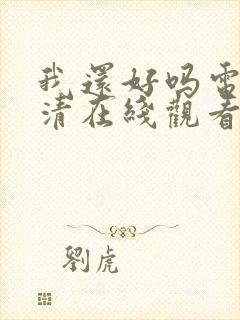 我還好吗電
清在綫觀看
劉虎